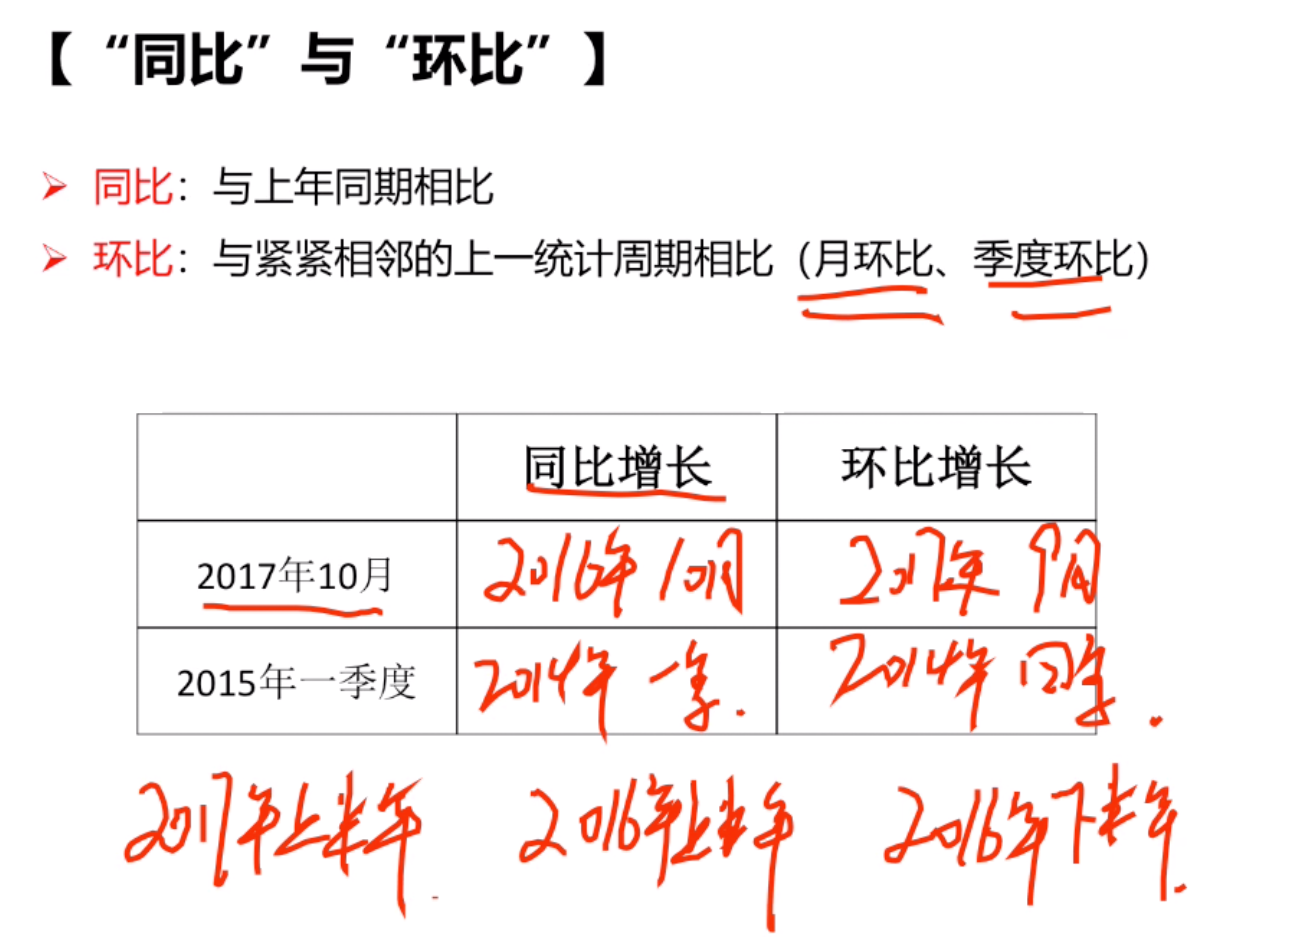 【 “同比” 与 “环比” 】
➢ 同比：与上年同期相比
➢ 环比：与紧紧相邻的上一统计周期相比（月环比、季度环比）
同比增长 环比增长
2017年10月 2016年 10月 2017年 9月
2015年一季度 2014年 一季. 2014年 四季.
2017年上半年. 2016年上半年 2016年下半年.